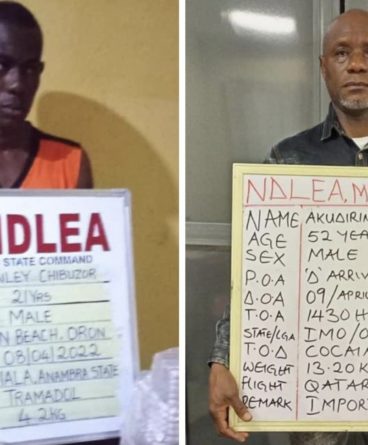 NDLEA
STATE COMMAND
NLEY CHIBUZOR
21YRS
MALE
N BEACH, ORON
08/04/2022
IALA, ANAMBRA STATE
TRAMADOL
4.2KG
NDLEA, M
NAME AKUDIRIN
AGE 52 YEA
SEX MALE
P.O.A 'D' ARRIV
D.O.A 09/APRI
T.O.A 1430 H
STATE/LGA IMO/O
T.O.D COCAI
WEIGHT 13.20 K
FLIGHT QATAR
REMARK IMPOR